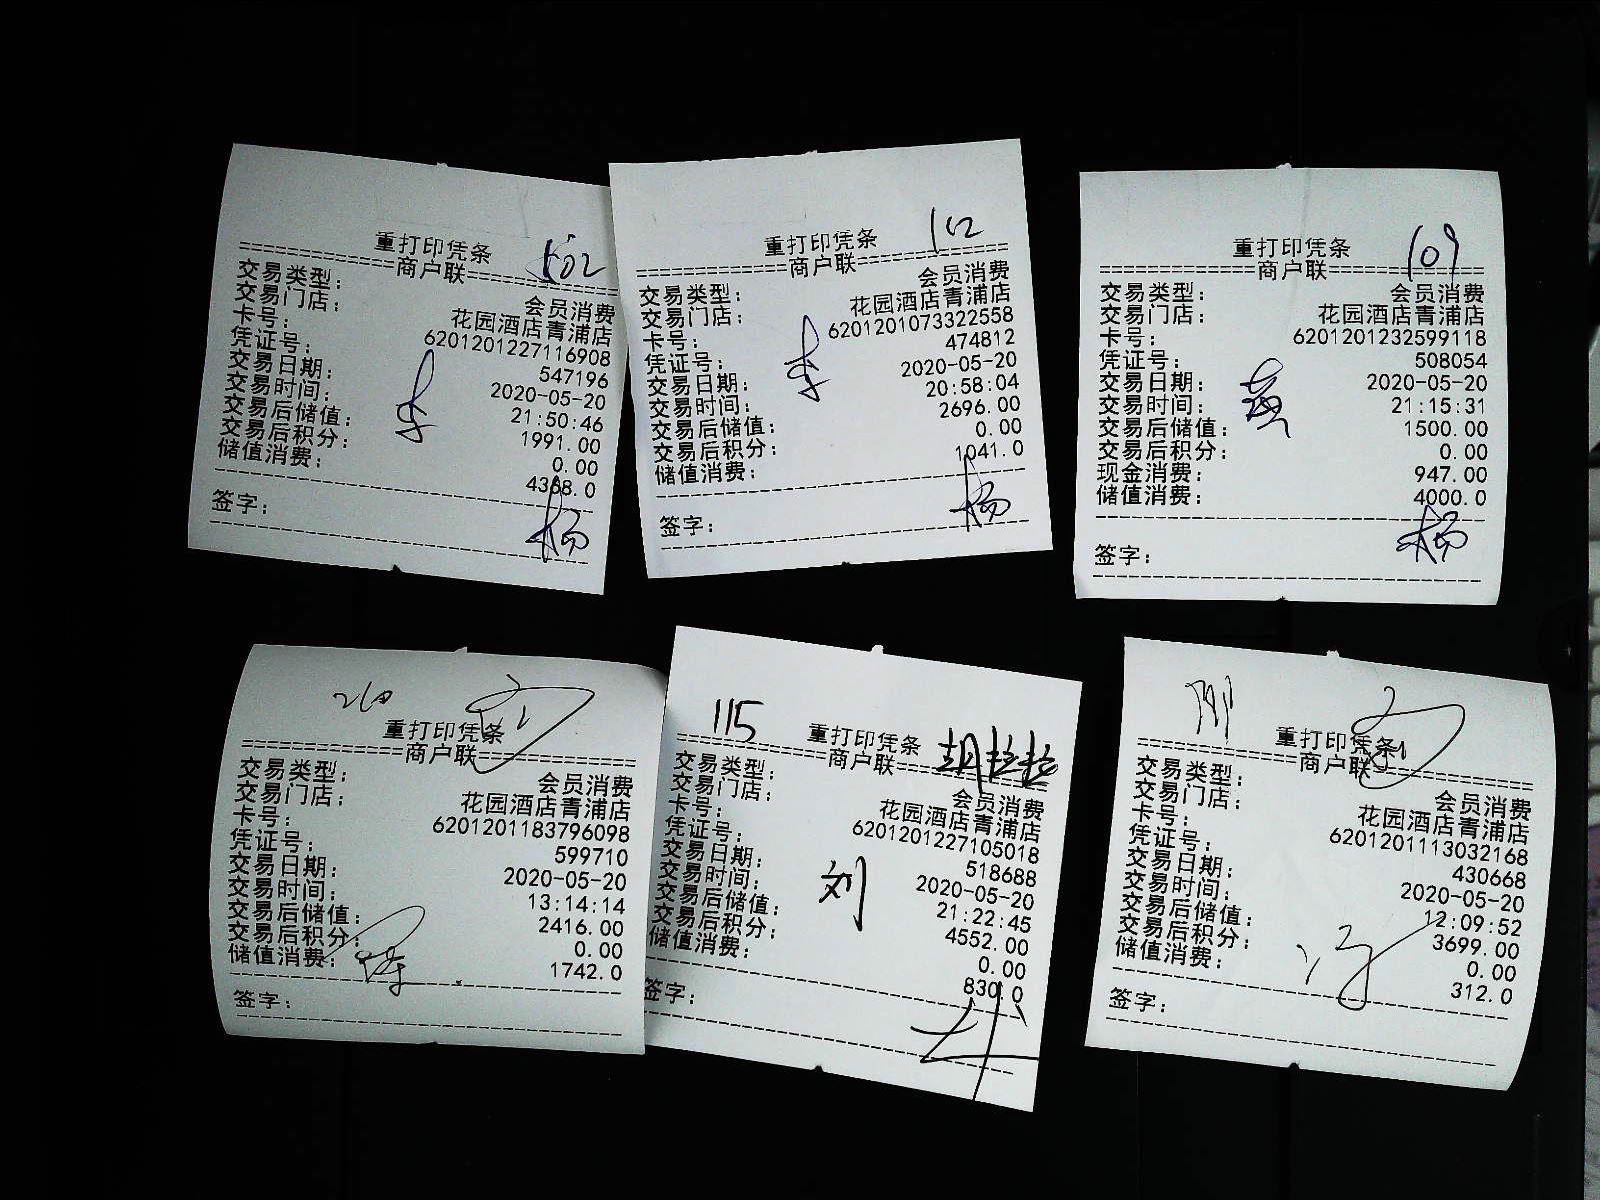 502
重打印凭条
商户联
交易类型： 会员消费
交易门店： 花园酒店青浦店
卡号： 6201201227116908
凭证号： 547196
交易日期： 2020-05-20
交易时间： 21:50:46
交易后储值： 1991.00
交易后积分： 0.00
储值消费： 4368.0
李
签字：
杨
102
重打印凭条
商户联
交易类型： 会员消费
交易门店： 花园酒店青浦店
卡号： 6201201073322558
凭证号： 474812
交易日期： 2020-05-20
交易时间： 20:58:04
交易后储值： 2696.00
交易后积分： 0.00
储值消费： 1041.0
李
签字：
杨
109
重打印凭条
商户联
交易类型： 会员消费
交易门店： 花园酒店青浦店
卡号： 6201201232599118
凭证号： 508054
交易日期： 2020-05-20
交易时间： 21:15:31
交易后储值： 1500.00
交易后积分： 0.00
现金消费： 947.00
储值消费： 4000.0
签字：
杨
重打印凭条
商户联
交易类型： 会员消费
交易门店： 花园酒店青浦店
卡号： 6201201183796098
凭证号： 599710
交易日期： 2020-05-20
交易时间： 13:14:14
交易后储值： 2416.00
交易后积分： 0.00
储值消费： 1742.0
签字：
115
重打印凭条
胡拉拉
商户联
交易类型： 会员消费
交易门店： 花园酒店青浦店
卡号： 6201201227105018
凭证号： 518688
交易日期： 2020-05-20
交易时间： 21:22:45
交易后储值： 4552.00
交易后积分： 0.00
储值消费： 830.0
刘
签字：
重打印凭条
商户联
交易类型： 会员消费
交易门店： 花园酒店青浦店
卡号： 6201201113032168
凭证号： 430668
交易日期： 2020-05-20
交易时间： 12:09:52
交易后储值： 3699.00
交易后积分： 0.00
储值消费： 312.0
签字：